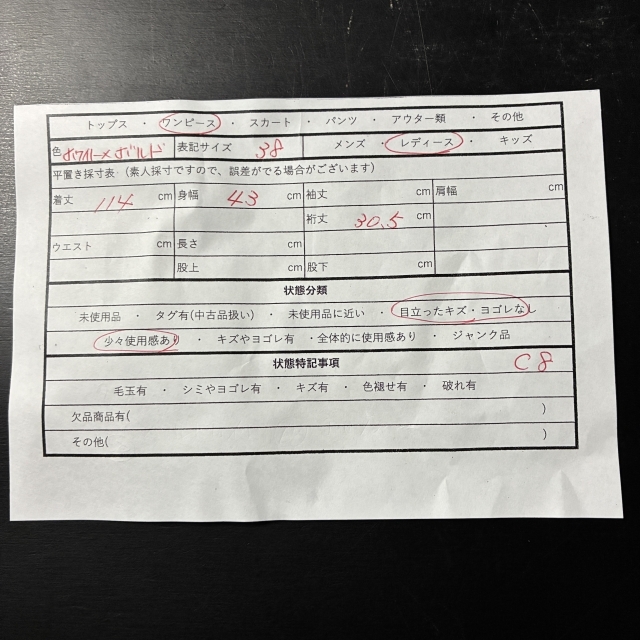 トップス ・ ワンピース ・ スカート ・ パンツ ・ アウター類 ・ その他
色 ホワイト×ボルド 表記サイズ 38 メンズ ・ レディース ・ キッズ
平置き採寸表 (素人採寸ですので、誤差がでる場合がございます)
着丈 114 cm 身幅 43 cm 袖丈 cm 肩幅 cm
裄丈 30.5 cm
ウエスト cm 長さ cm
股上 cm 股下 cm
状態分類
未使用品 ・ タグ有(中古品扱い) ・ 未使用品に近い ・ 目立ったキズ・ヨゴレなし
少々使用感あり ・ キズやヨゴレ有 ・全体的に使用感あり ・ ジャンク品
状態特記事項 C8
毛玉有 ・ シミやヨゴレ有 ・ キズ有 ・ 色褪せ有 ・ 破れ有
欠品商品有( )
その他( )